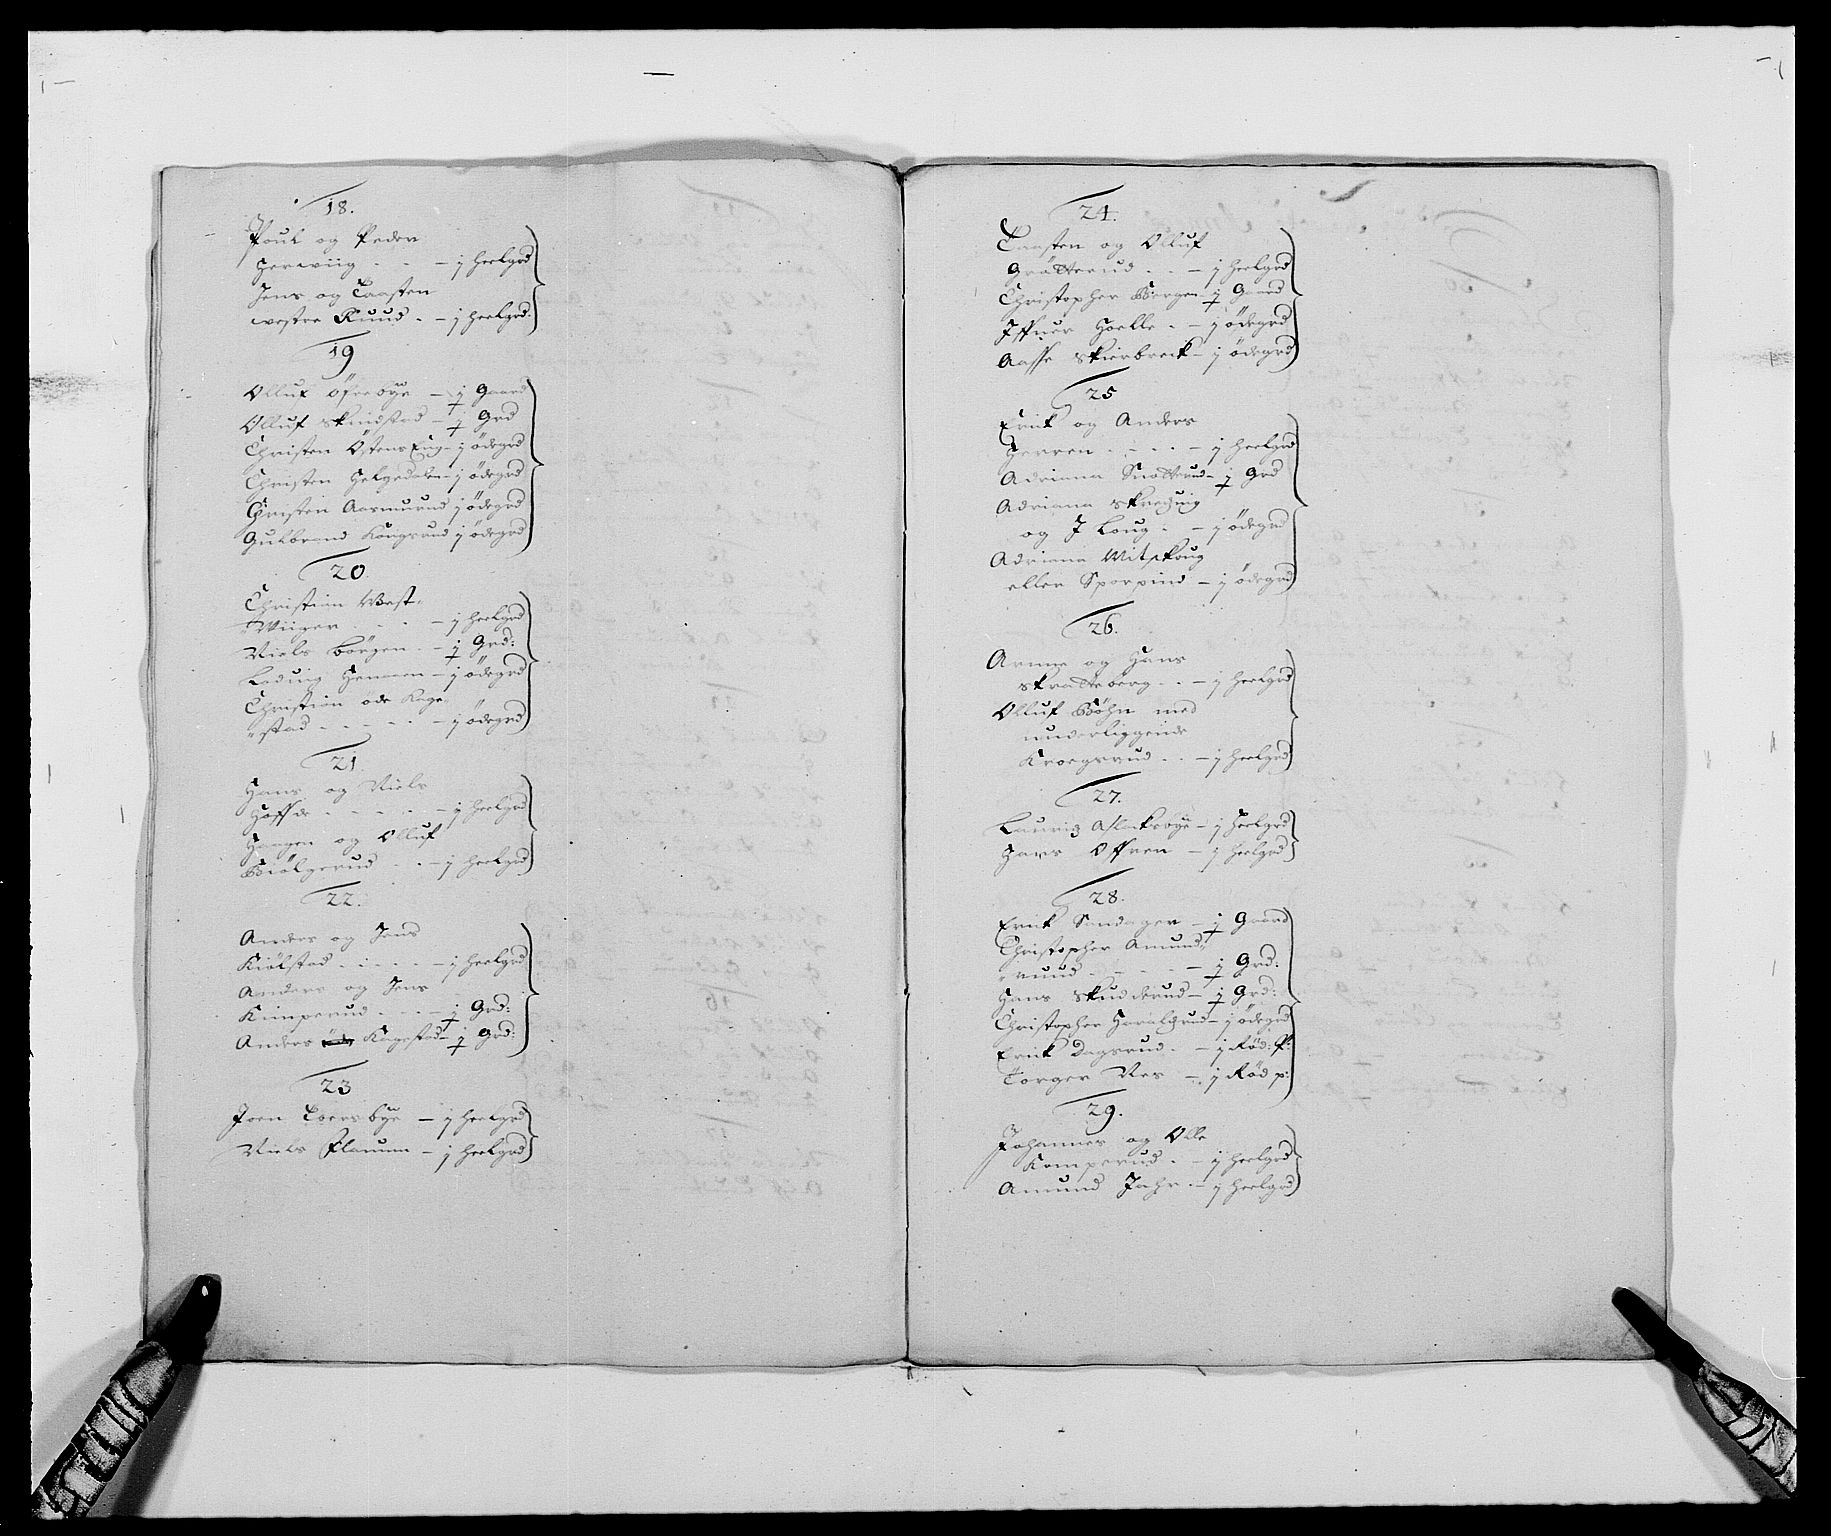 18.
Poul og Peder
Herwiig . . – j heelgrd
Jens og Taasten
westre Ruud . – j heelgrd:
19
Olluf Öfreöye – j Gaard
Olluf Skindstad – j Grd
Christen Östens Eng – j ödegrd
Christen Helgedalen – j ödegrd
Christen Aasmurud j ödegrd
Gulbrand Kongsrud j ödegrd
20.
Christian West-
Wiiger . . . – j heelgrd
Niels Börgen . – j Grd:
Ladvig Hemmen – j ödegrd
Christian öde Kage-
stad . . . . . – j ödegrd
21.
Hans og Niels
Hoffde . . . . – j heelgrd
Haagen og Olluf
Biölgerud . . – j heelgrd
22.
Anders og Jens
Kiölstad . . . . – j heelgrd
Anders og Jens
Kimperud . . . – j Grd:
Anders Kagestad – j Grd:
23
Joen Toersbye – j heelgrd
Niels Flauum – j heelgrd
24.
Taasten og Olluf
Grötterud . . – j heelgrd
Christopher Bergen j Gaard
Iffuer Hoelle . – j ödegrd
Aasse Skierbreck – j ödegrd
25
Erick og Anders
Herren . . . . – j heelgrd
Adriana Snötterud – j Grd
Adriana Skreduig
og J Loug . – j ödegrd
Adriana Mitskoug
eller Sporpind – j ödegrd
26.
Arnne og Hans
Skratteberg . . – j heelgrd
Olluf Böhn med
underliggende
Kroegsrud . . – j heelgrd
27.
Lauriz Aslacksöye – j Heelgrd
Hans Offren – j heelgrd
28.
Erick Sandager – j Gaard
Christopher Amund-
ruud . . . . – j Grd:
Hans Skudderud – j Grd:
Christopher Haralgrud – j ödegrd
Erick Dagsrud . – j Rød: P:
Torger Nes – j Rød p:
29.
Johannes og Olle
Komperud . – j heelgrd
Amund Jahr – j heelgrd